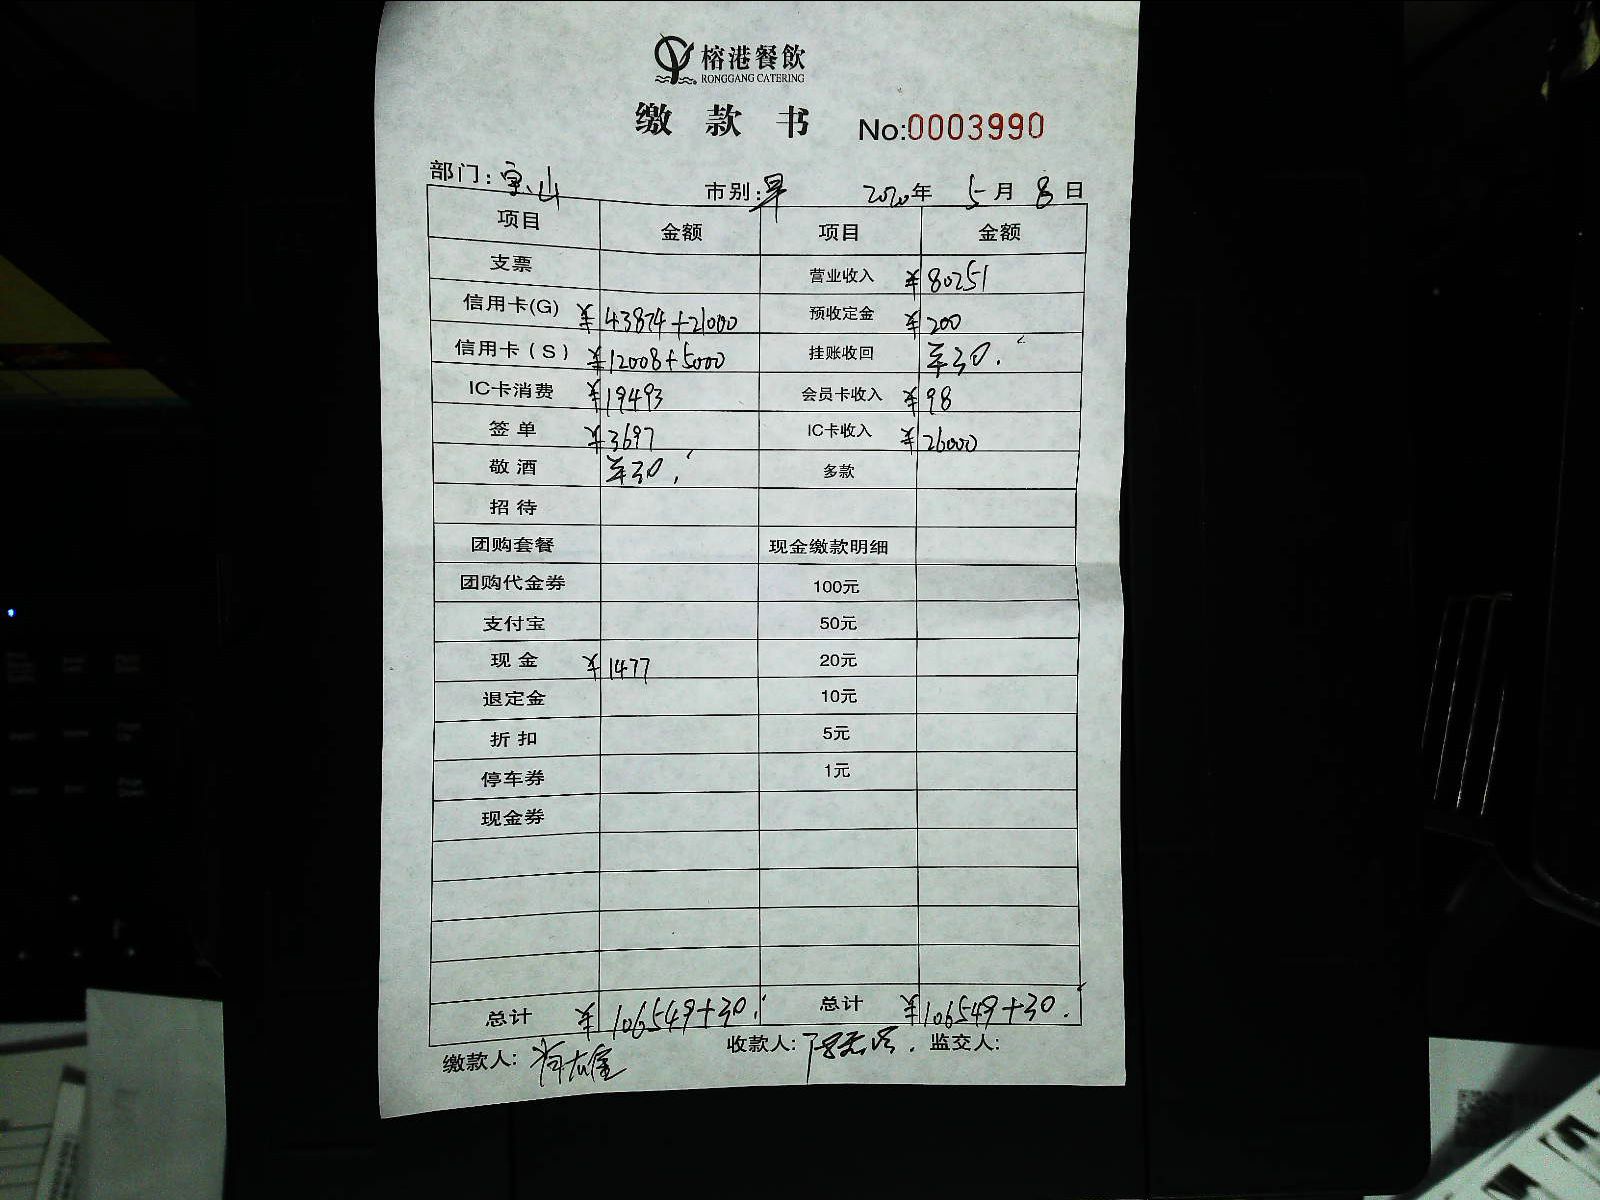 榕港餐飲
RONGGANG CATERING
缴款书 No:0003990
部门:宝山 市别:早 2020年 5月 8日
项目 金额 项目 金额
支票 营业收入 ¥80251
信用卡(G) ¥43874+21000 预收定金 ¥200
信用卡(S) ¥12008+5000 挂账收回 ¥30.
IC卡消费 ¥19493 会员卡收入 ¥98
签单 ¥3697 IC卡收入 ¥26000
敬酒 ¥30. 多款
招待
团购套餐 现金缴款明细
团购代金券 100元
支付宝 50元
现金 ¥1477 20元
退定金 10元
折扣 5元
停车券 1元
现金券
总计 ¥106549+30. 总计 ¥106549+30.
缴款人: 收款人: 监交人: